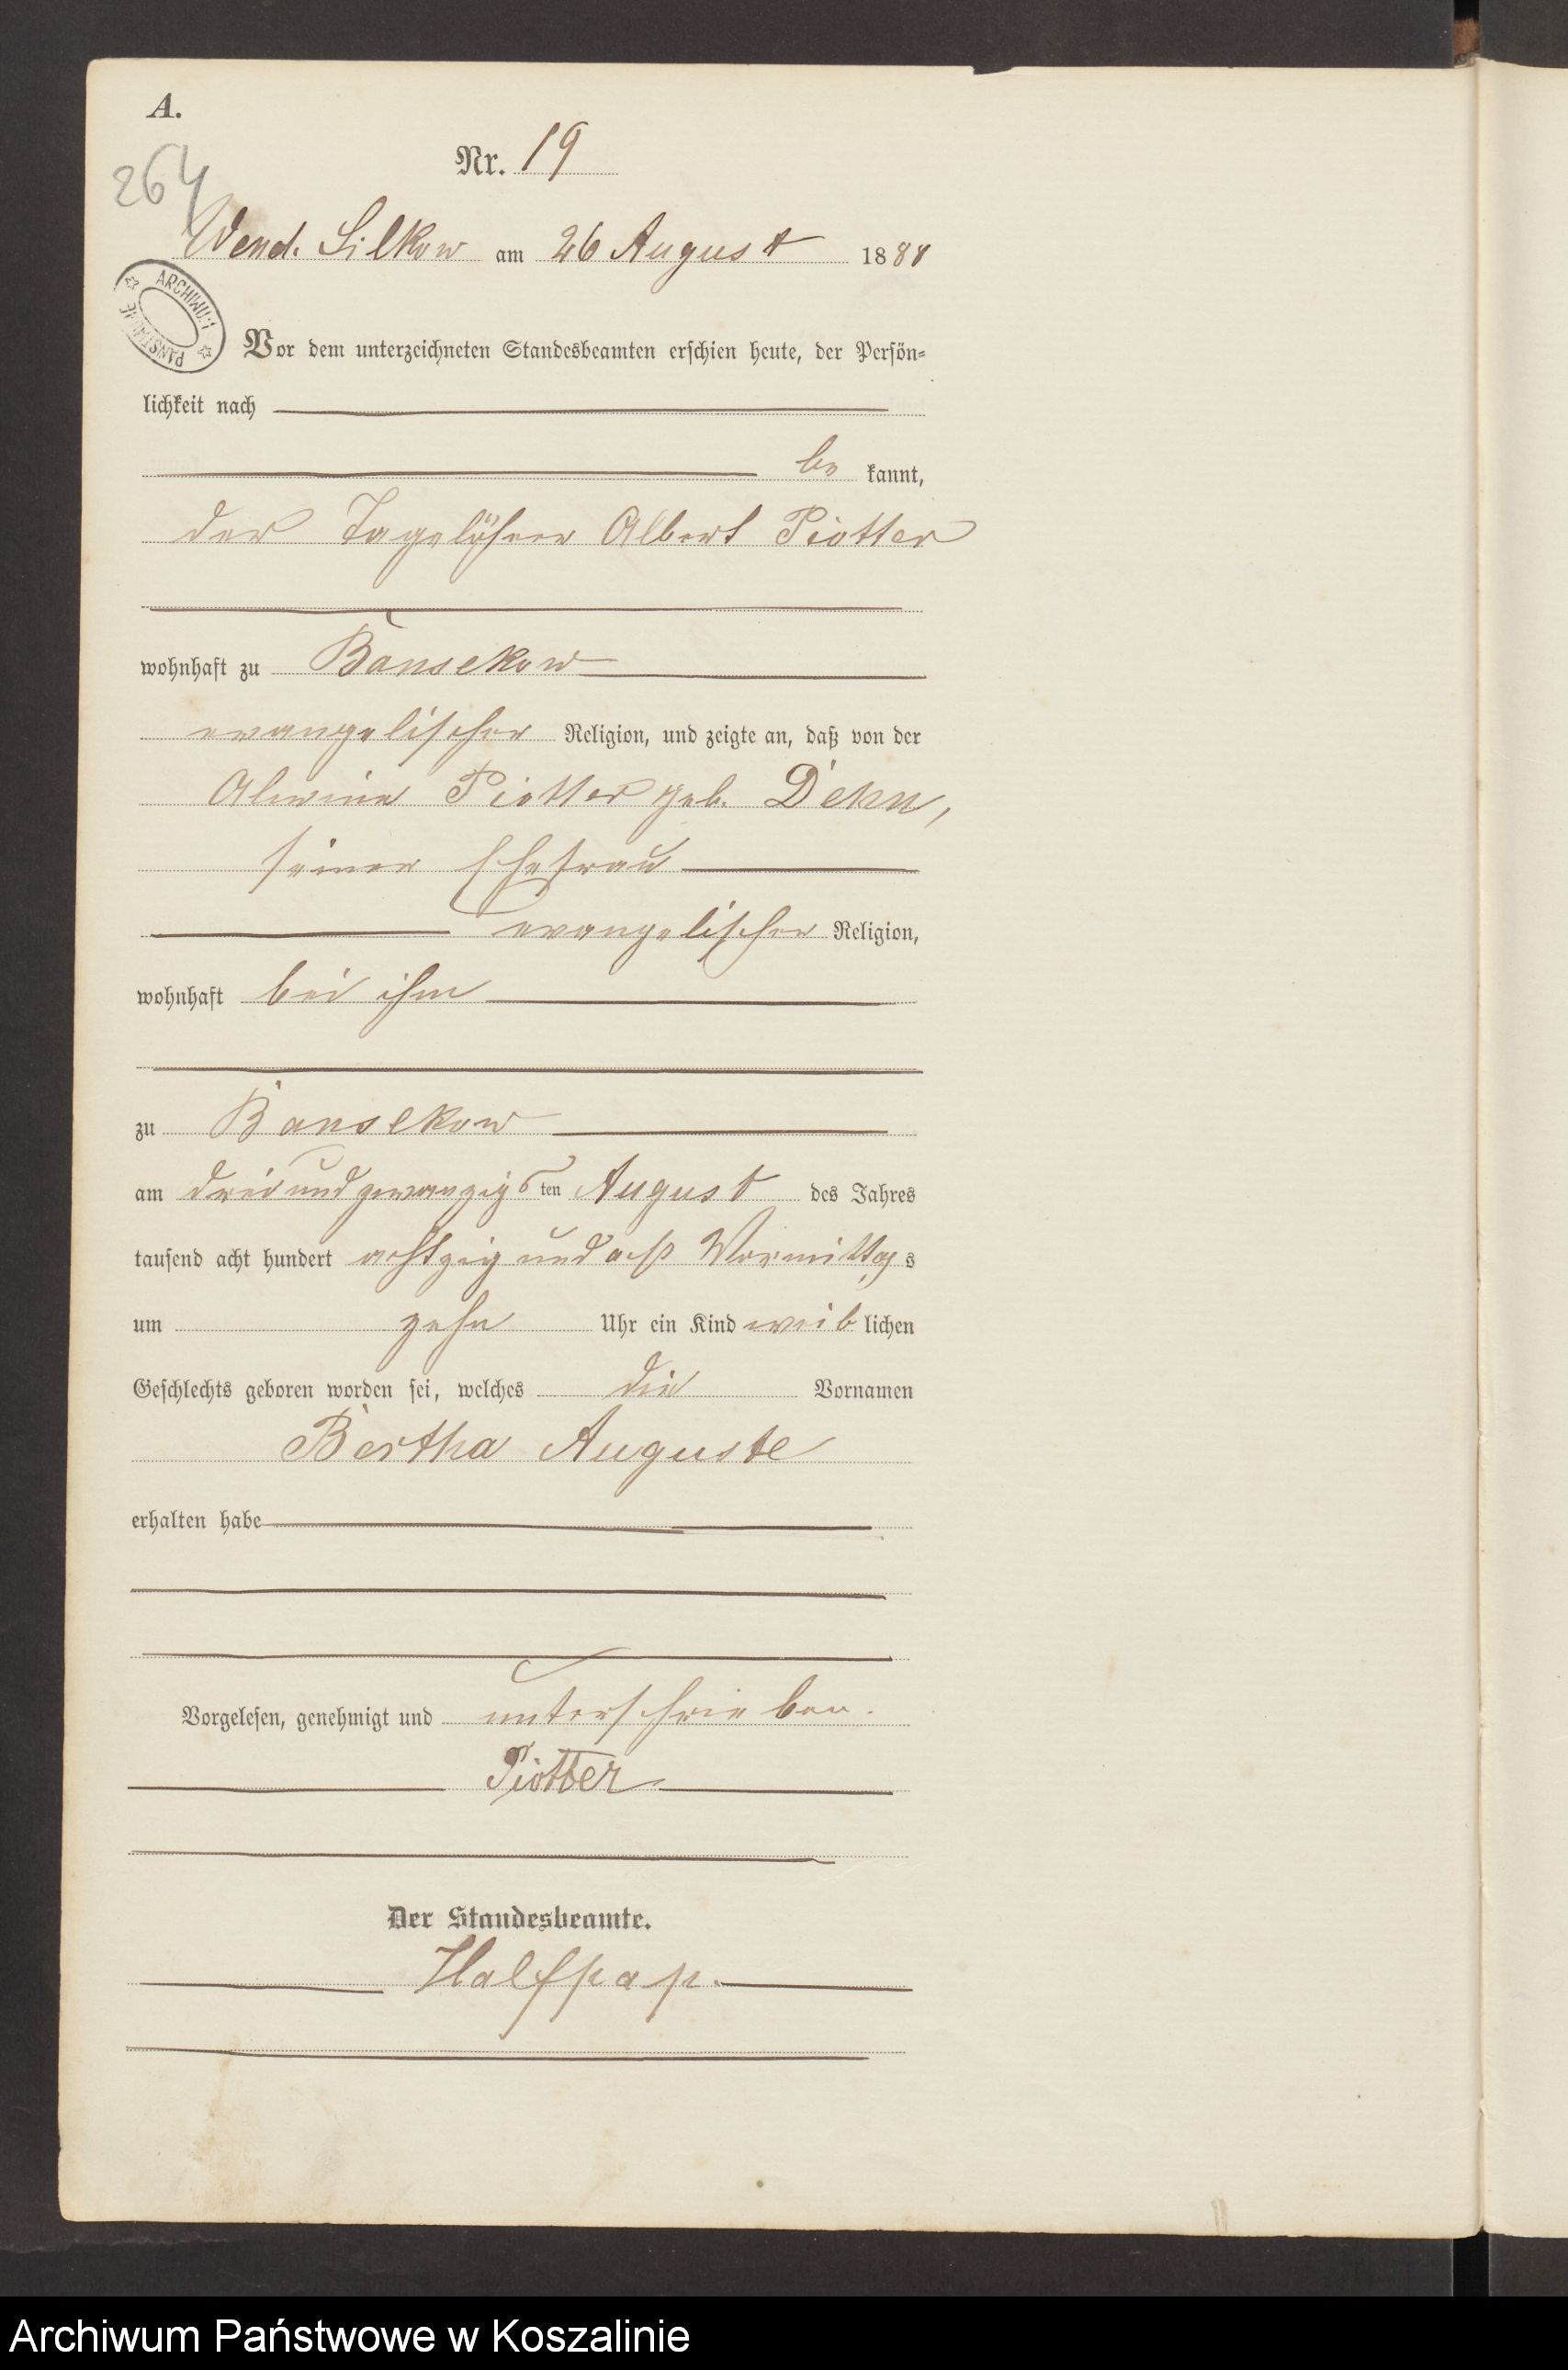 A.
264
Nr. 19
Wend. Silkow am 26 August 1888
ARCHIWUM PAŃSTWOWE
Vor dem unterzeichneten Standesbeamten erschien heute, der Persön-
lichkeit nach
be kannt,
der Tagelöhner Albert Piotter
wohnhaft zu Bansekow
evangelischer Religion, und zeigte an, daß von der
Alwine Piotter geb. Dehn,
seiner Ehefrau
evangelischer Religion,
wohnhaft bei ihm
zu Bansekow
am dreiundzwanzigsten August des Jahres
tausend acht hundert achtzig und acht Vormittags
um zehn Uhr ein Kind weiblichen
Geschlechts geboren worden sei, welches die Vornamen
Bertha Auguste
erhalten habe
Vorgelesen, genehmigt und unterschrieben.
Piotter
Der Standesbeamte.
Halfpap.
Archiwum Państwowe w Koszalinie